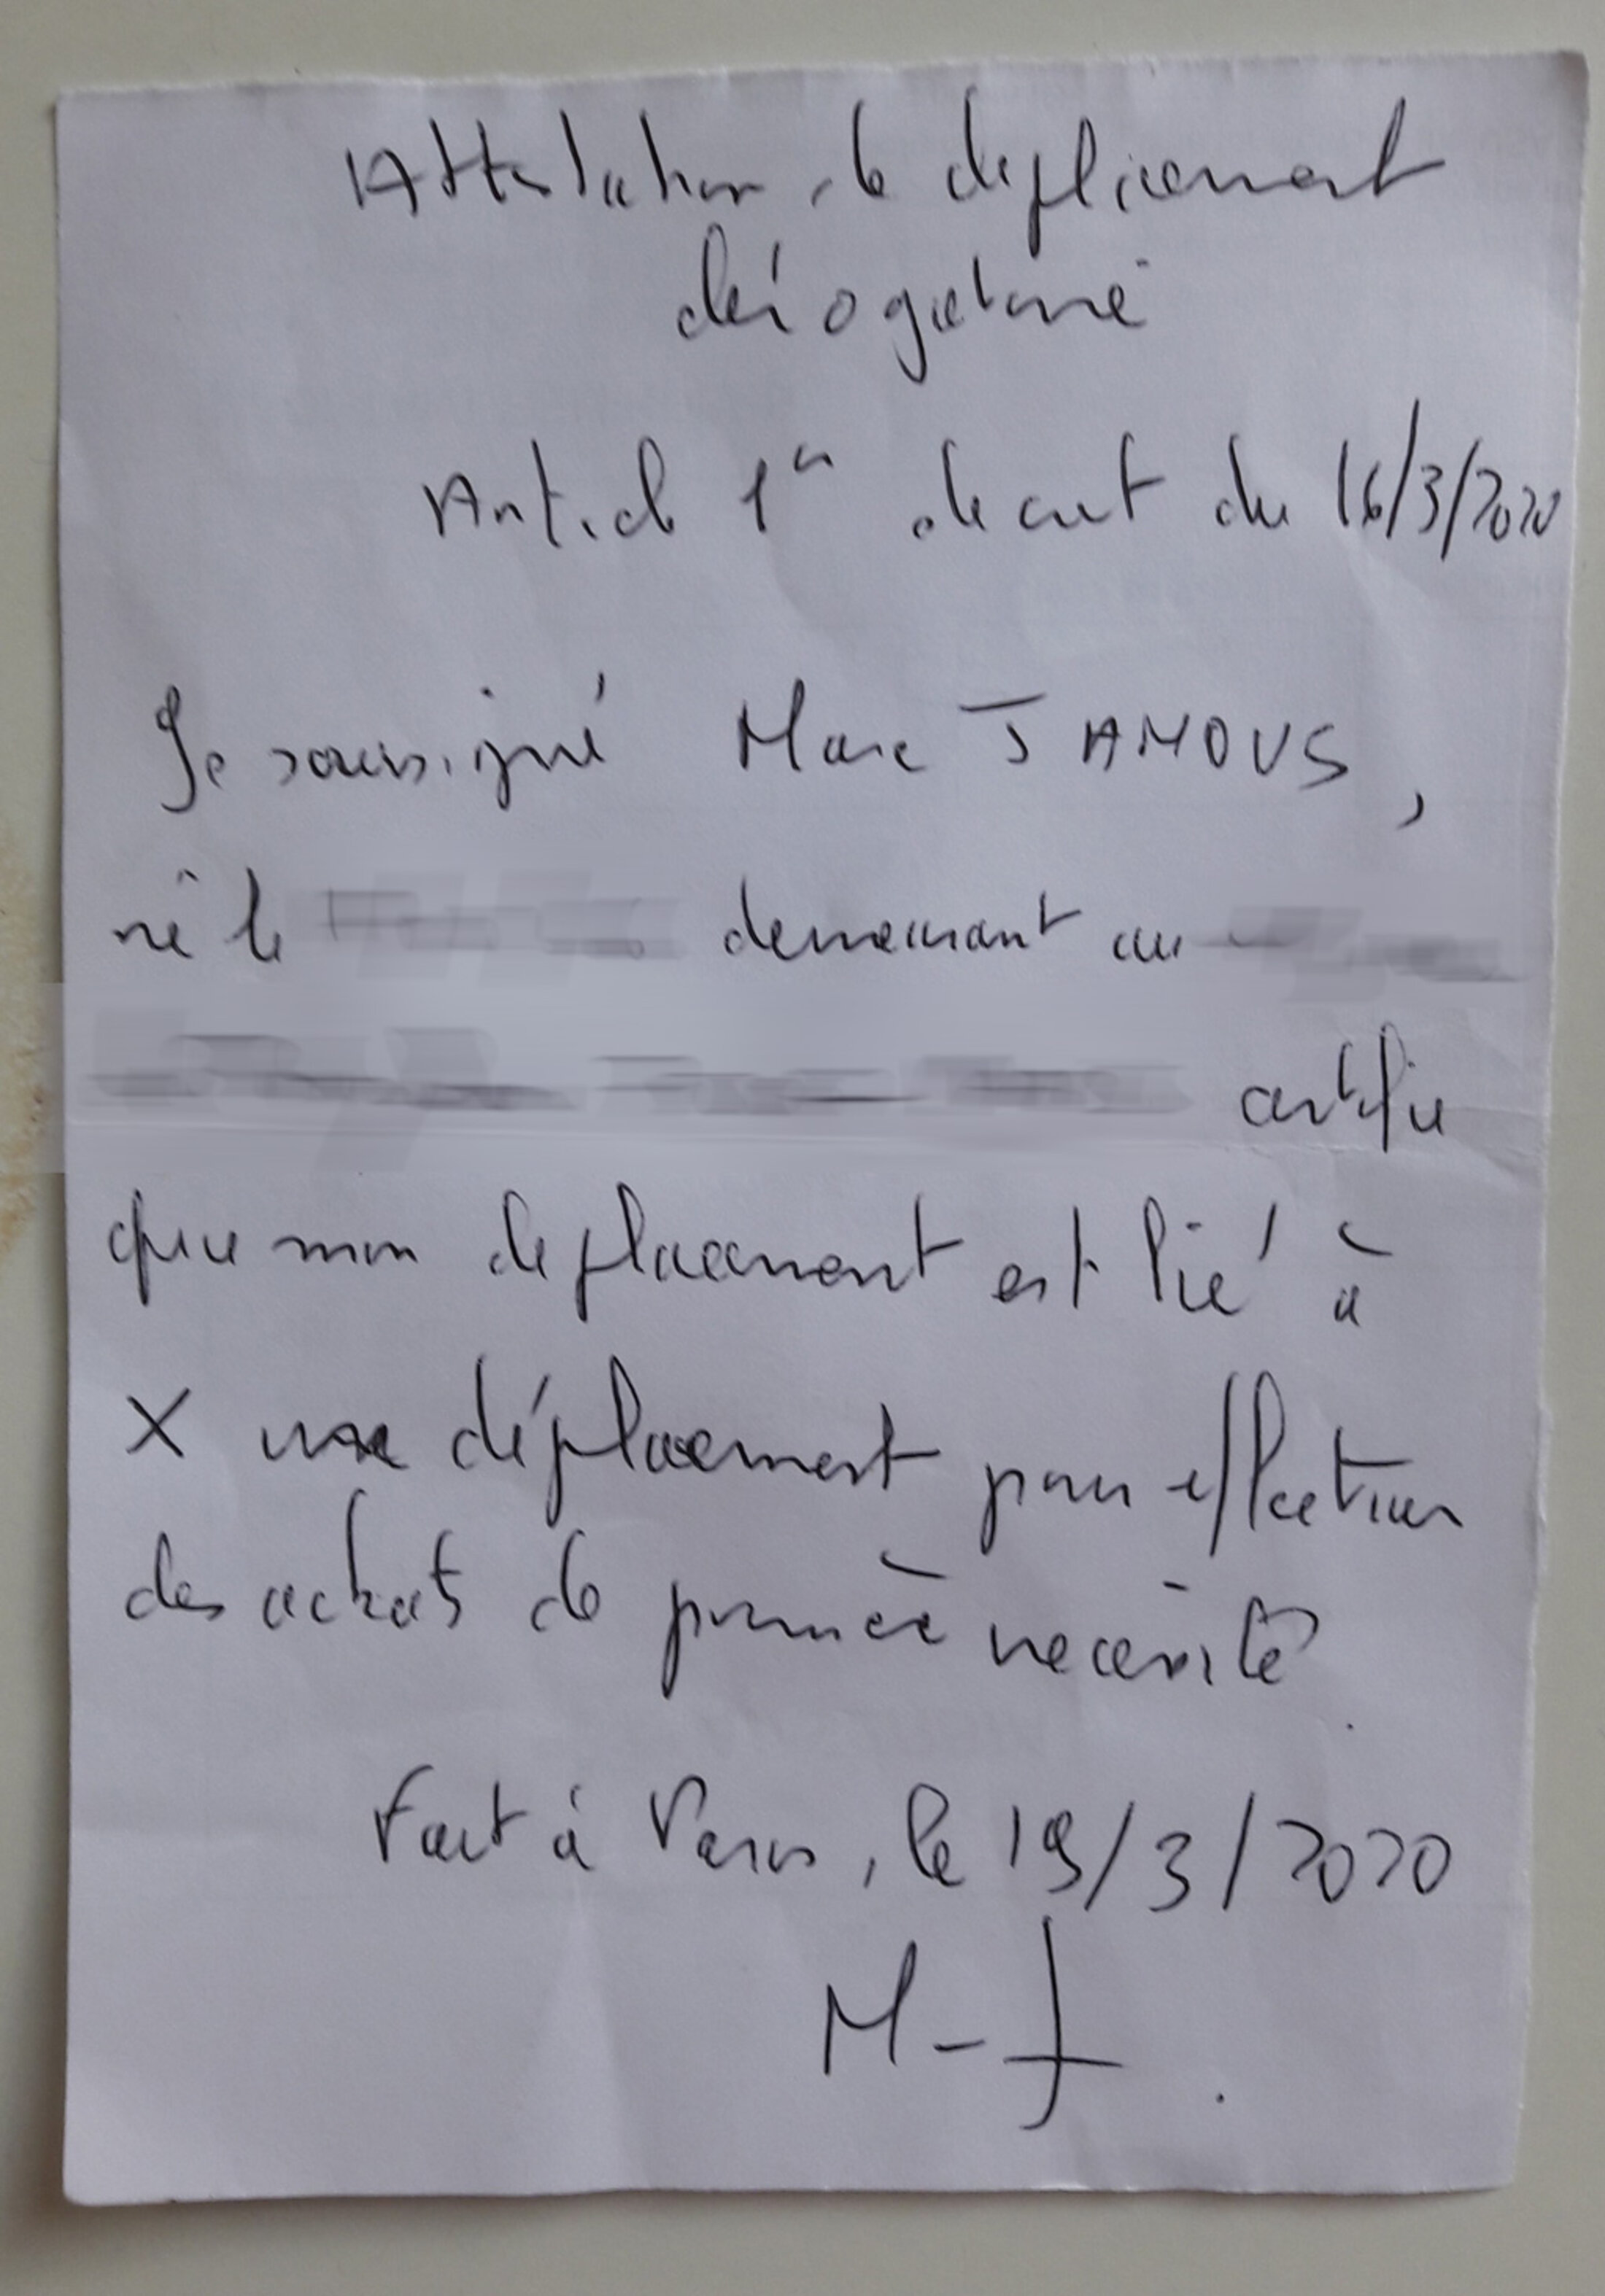 Attestation de déplacement
dérogatoire
Article 1er décret du 16/3/2020
Je soussigné Marc JAMOUS,
né le demeurant au
certifie
que mon déplacement est lié à
X un déplacement pour effectuer
des achats de première nécessité.
Fait à Paris, le 19/3/2020
M-J.